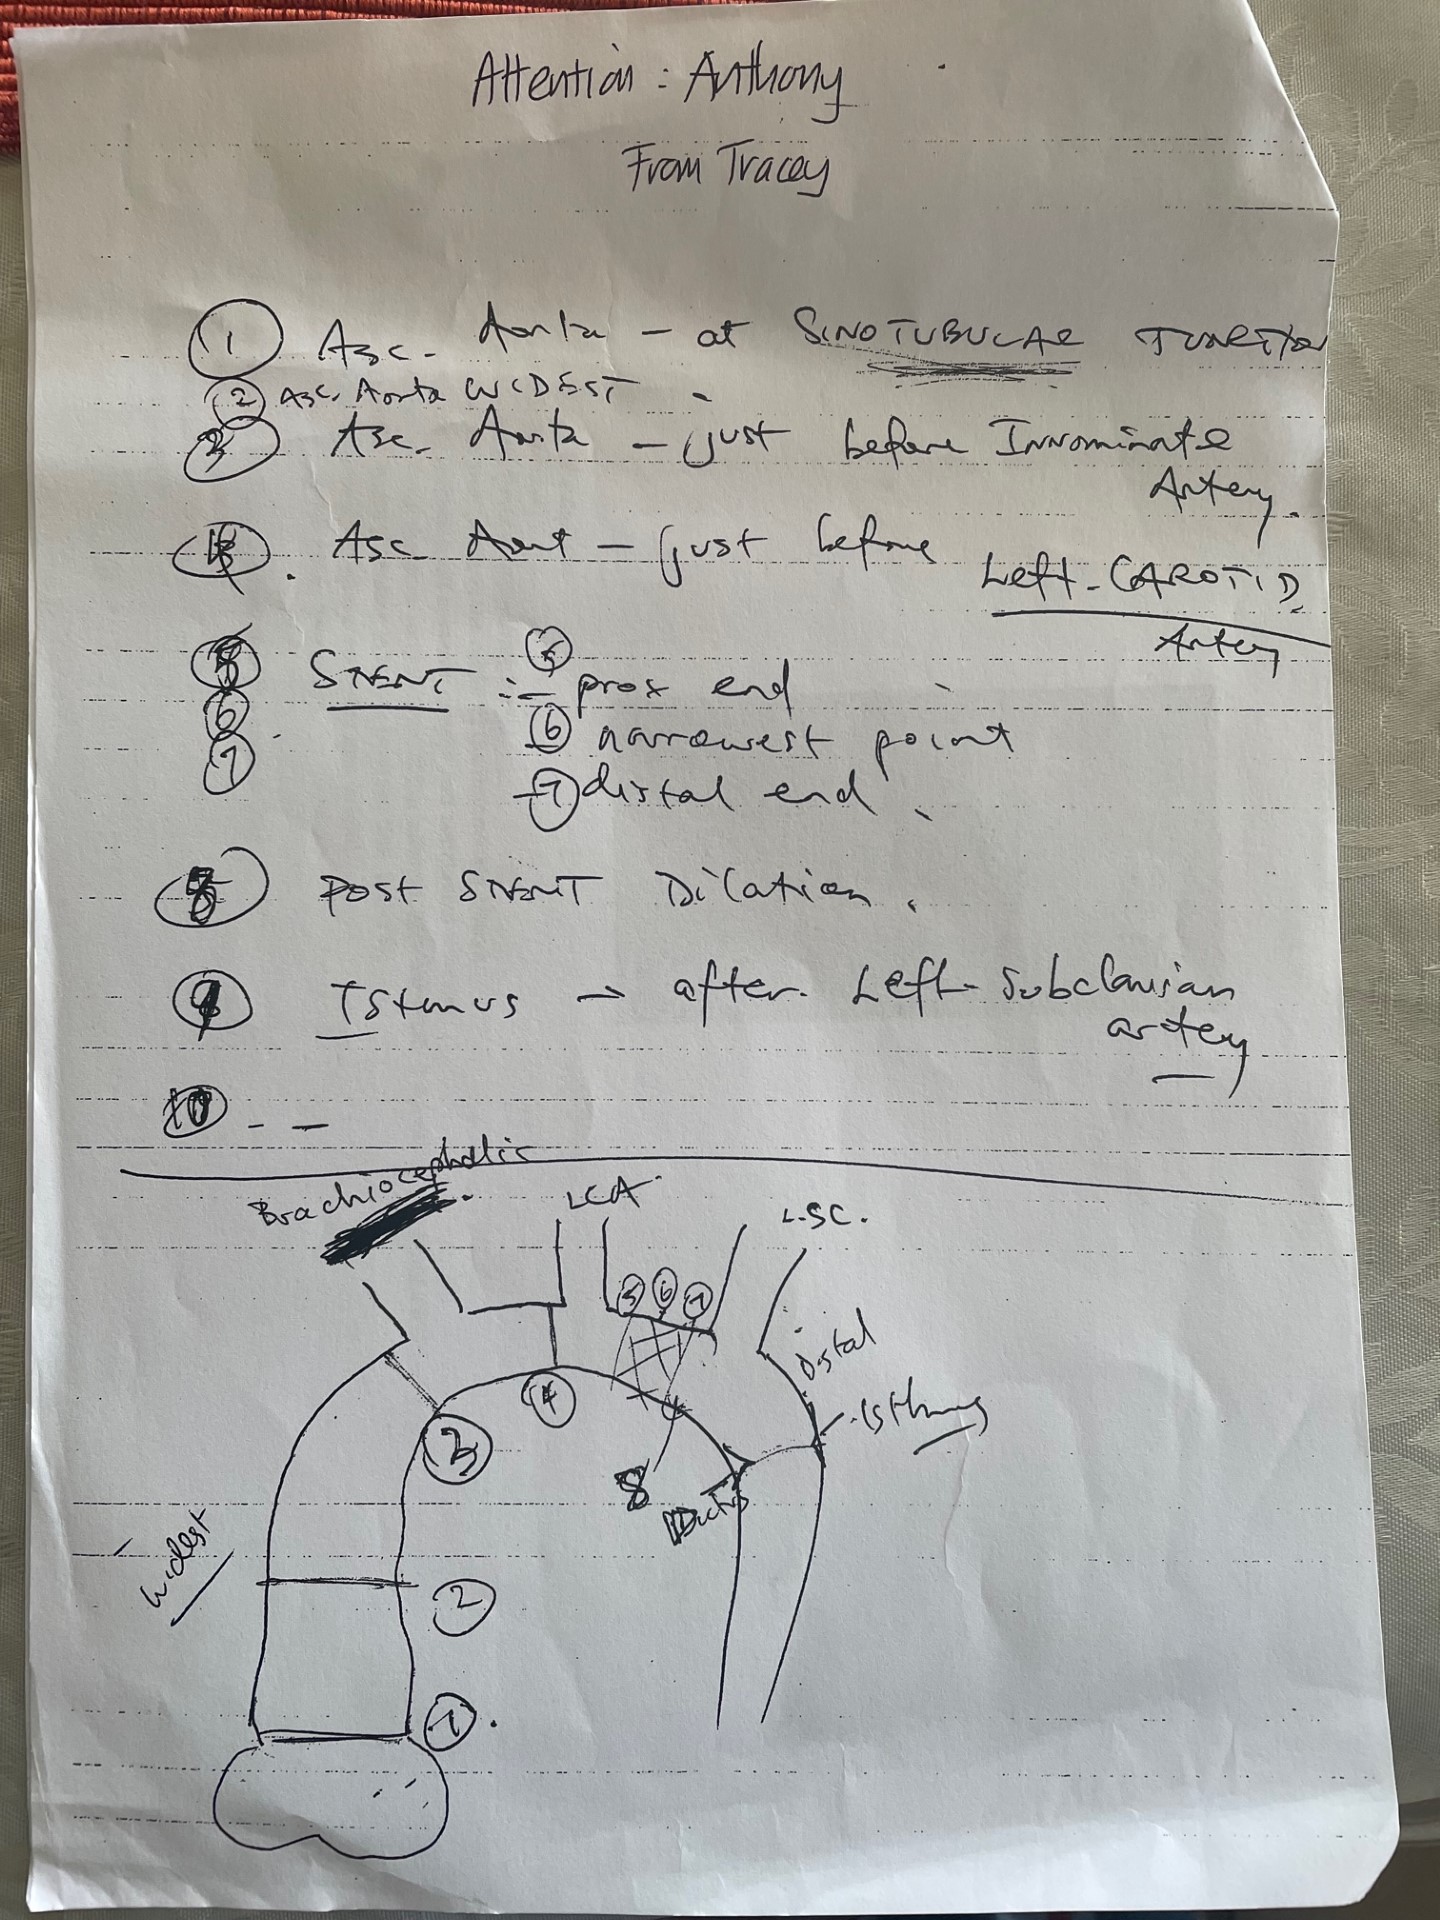 Attention : Anthony
From Tracey
① Asc. Aorta – at SINOTUBULAR JUNCTION
② Asc. Aorta WIDEST
③ Asc. Aorta – just before Innominate
Artery.
④. Asc Aort – just before
Left-CAROTID
Artery
⑤ STENT :- ⑤ prox end
⑥ ⑥ narrowest point
⑦ – ⑦ distal end.
⑧ POST STENT Dilation.
⑨ Istmus → after Left-Subclavian
artery
⑩ - –
Brachiocephalic
LCA
L.SC.
⑤ ⑥ ⑦
Distal
Isthmus
④
③
8
Ductus
Widest
②
①.